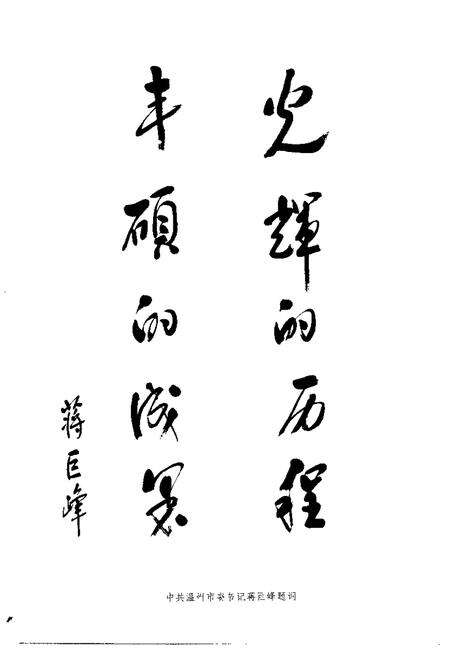 光輝的历程
丰碩的成果
蒋巨峰
中共温州市委书记蒋巨峰题词